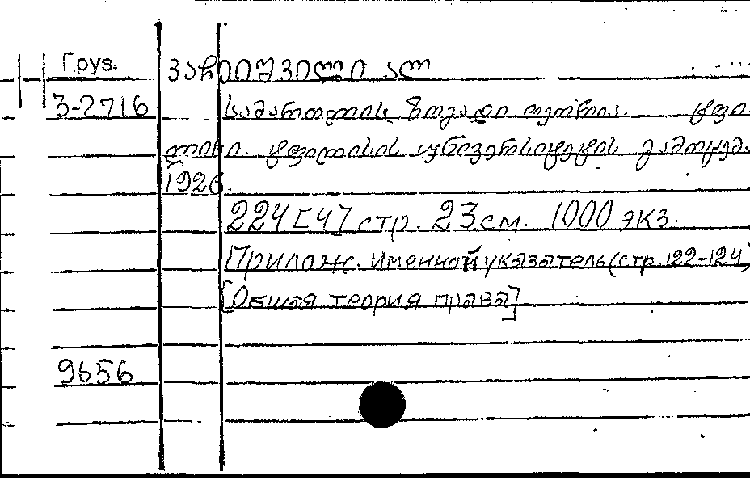 Груз.
ვაჩეიშვილი ალ
3-2716 სამართლის ზოგადი თეორია. ტფი
ლისი. ტფილისის უნივერსიტეტის გამოცემა
1926.
224 [4] стр. 23 см. 1000 экз.
Прилож. Именной указатель (стр. 122-124)
[Общая теория права]
9656